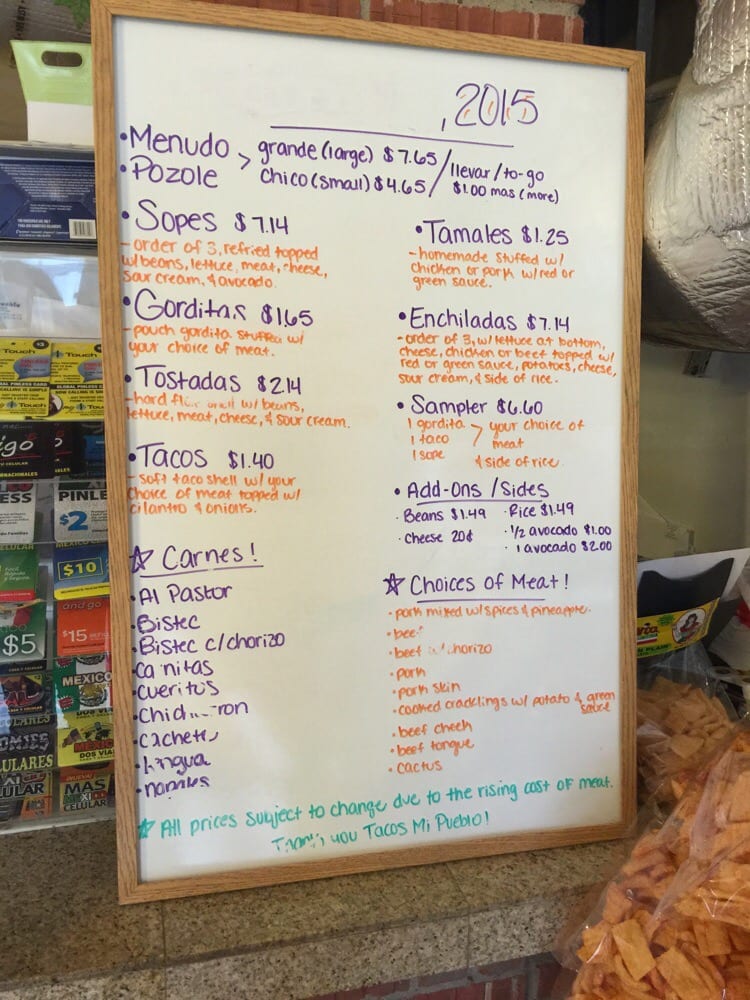 ,2015
• Menudo
• Pozole
> grande (large) $7.65
Chico (small) $4.65
/ llevar / to-go
$1.00 mas (more)
• Sopes $7.14
- order of 3, refried topped
w/beans, lettuce, meat, cheese,
sour cream, & avocado.
• Gorditas $1.65
- pouch gordita stuffed w/
your choice of meat.
• Tostadas $2.14
- hard shell w/ beans,
lettuce, meat, cheese, & sour cream.
• Tacos $1.40
- soft taco shell w/ your
choice of meat topped w/
cilantro & onions.
☆ Carnes!
• Al Pastor
• Bistec
• Bistec c/chorizo
• Carnitas
• Cueritos
• Chicharron
• Cachete
• Lingua
• nopales
• Tamales $1.25
- homemade stuffed w/
chicken or pork w/red or
green sauce.
• Enchiladas $7.14
- order of 3, w/ lettuce at bottom,
cheese, chicken or beef topped w/
red or green sauce, potatoes, cheese,
sour cream, & side of rice.
• Sampler $6.60
1 gordita
1 taco
1 sope
> your choice of
meat
& side of rice
• Add-Ons / Sides
• Beans $1.49 • Rice $1.49
• Cheese 20¢ • 1/2 avocado $1.00
• 1 avocado $2.00
☆ Choices of Meat!
• pork mixed w/spices & pineapple.
• beef
• beef w/chorizo
• pork
• pork skin
• cooked cracklings w/ potato & green
sauce
• beef cheek
• beef tongue
• cactus
☆ All prices subject to change due to the rising cost of meat.
Thank you Tacos Mi Pueblo!
Touch
Touch
PINLE
$2
$10
$5
and go
$15
MEXICO
MEXICO
DOS VIA
MAS
MEXICO
CELULAR